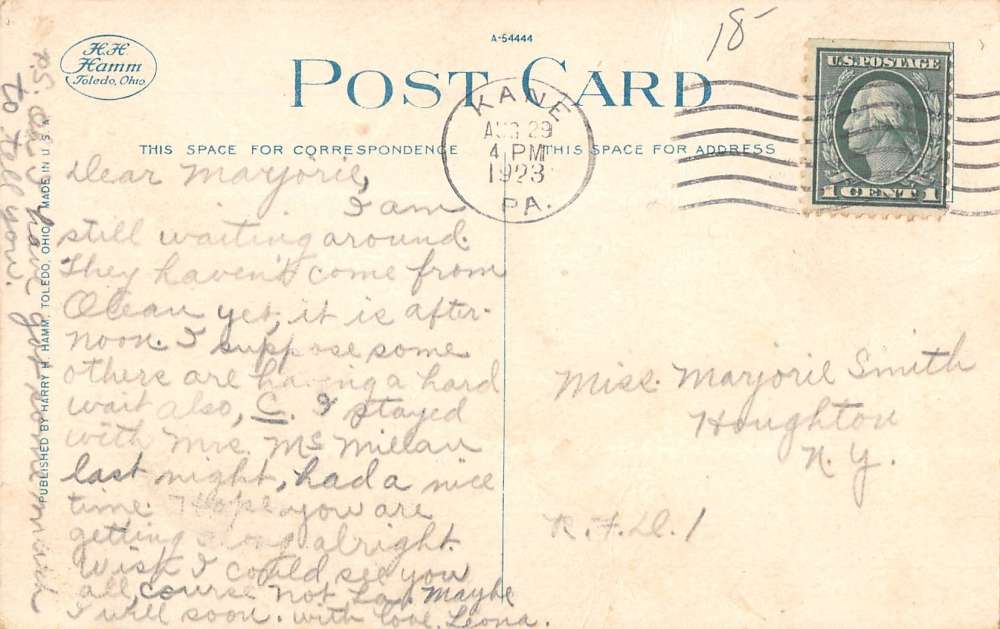 H.H
Hamm
Toledo, Ohio.
A-54444
18
POST CARD
THIS SPACE FOR CORRESPONDENCE
THIS SPACE FOR ADDRESS
KANE
AUG 29
4 PM
1923
PA.
U.S. POSTAGE
1 CENT 1
Dear Marjorie,
I am
still waiting around.
They haven't come from
Olean yet, it is after-
noon. I suppose some
others are having a hard
wait also, C. & I stayed
with Mrs. McMillan
last night, had a nice
time. Hope you are
getting along alright.
Wish I could see you
all, course not Maybe
I will soon. with love. Leona.
Miss. Marjorie Smith
Houghton
N.Y.
R.F.D. 1
P.S. have got so much
to tell you.
PUBLISHED BY HARRY H. HAMM, TOLEDO, OHIO. MADE IN U.S.A.